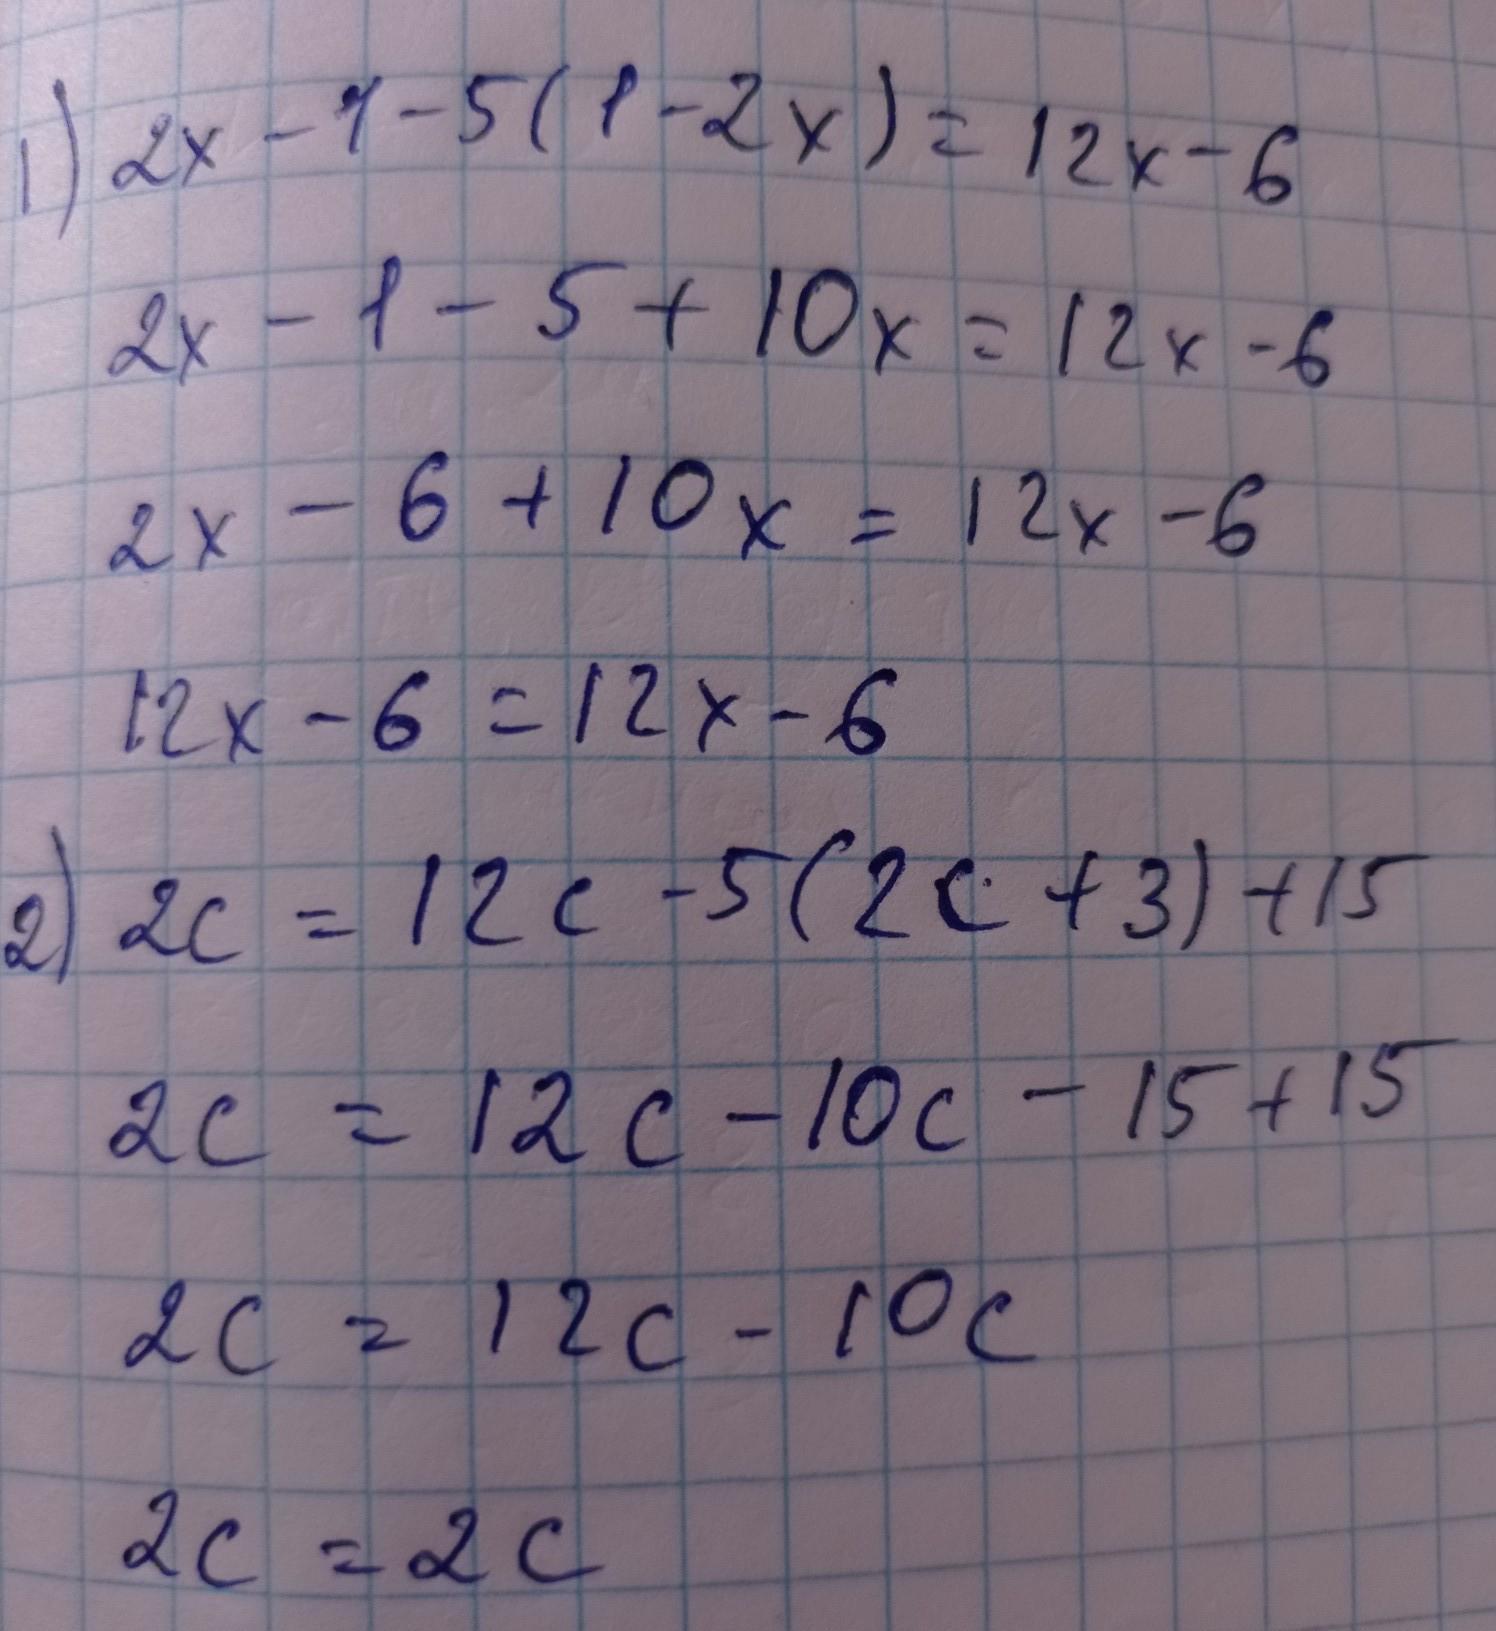 1) 2x - 1 - 5(1 - 2x) = 12x - 6
2x - 1 - 5 + 10x = 12x - 6
2x - 6 + 10x = 12x - 6
12x - 6 = 12x - 6
2) 2c = 12c - 5(2c + 3) + 15
2c = 12c - 10c - 15 + 15
2c = 12c - 10c
2c = 2c